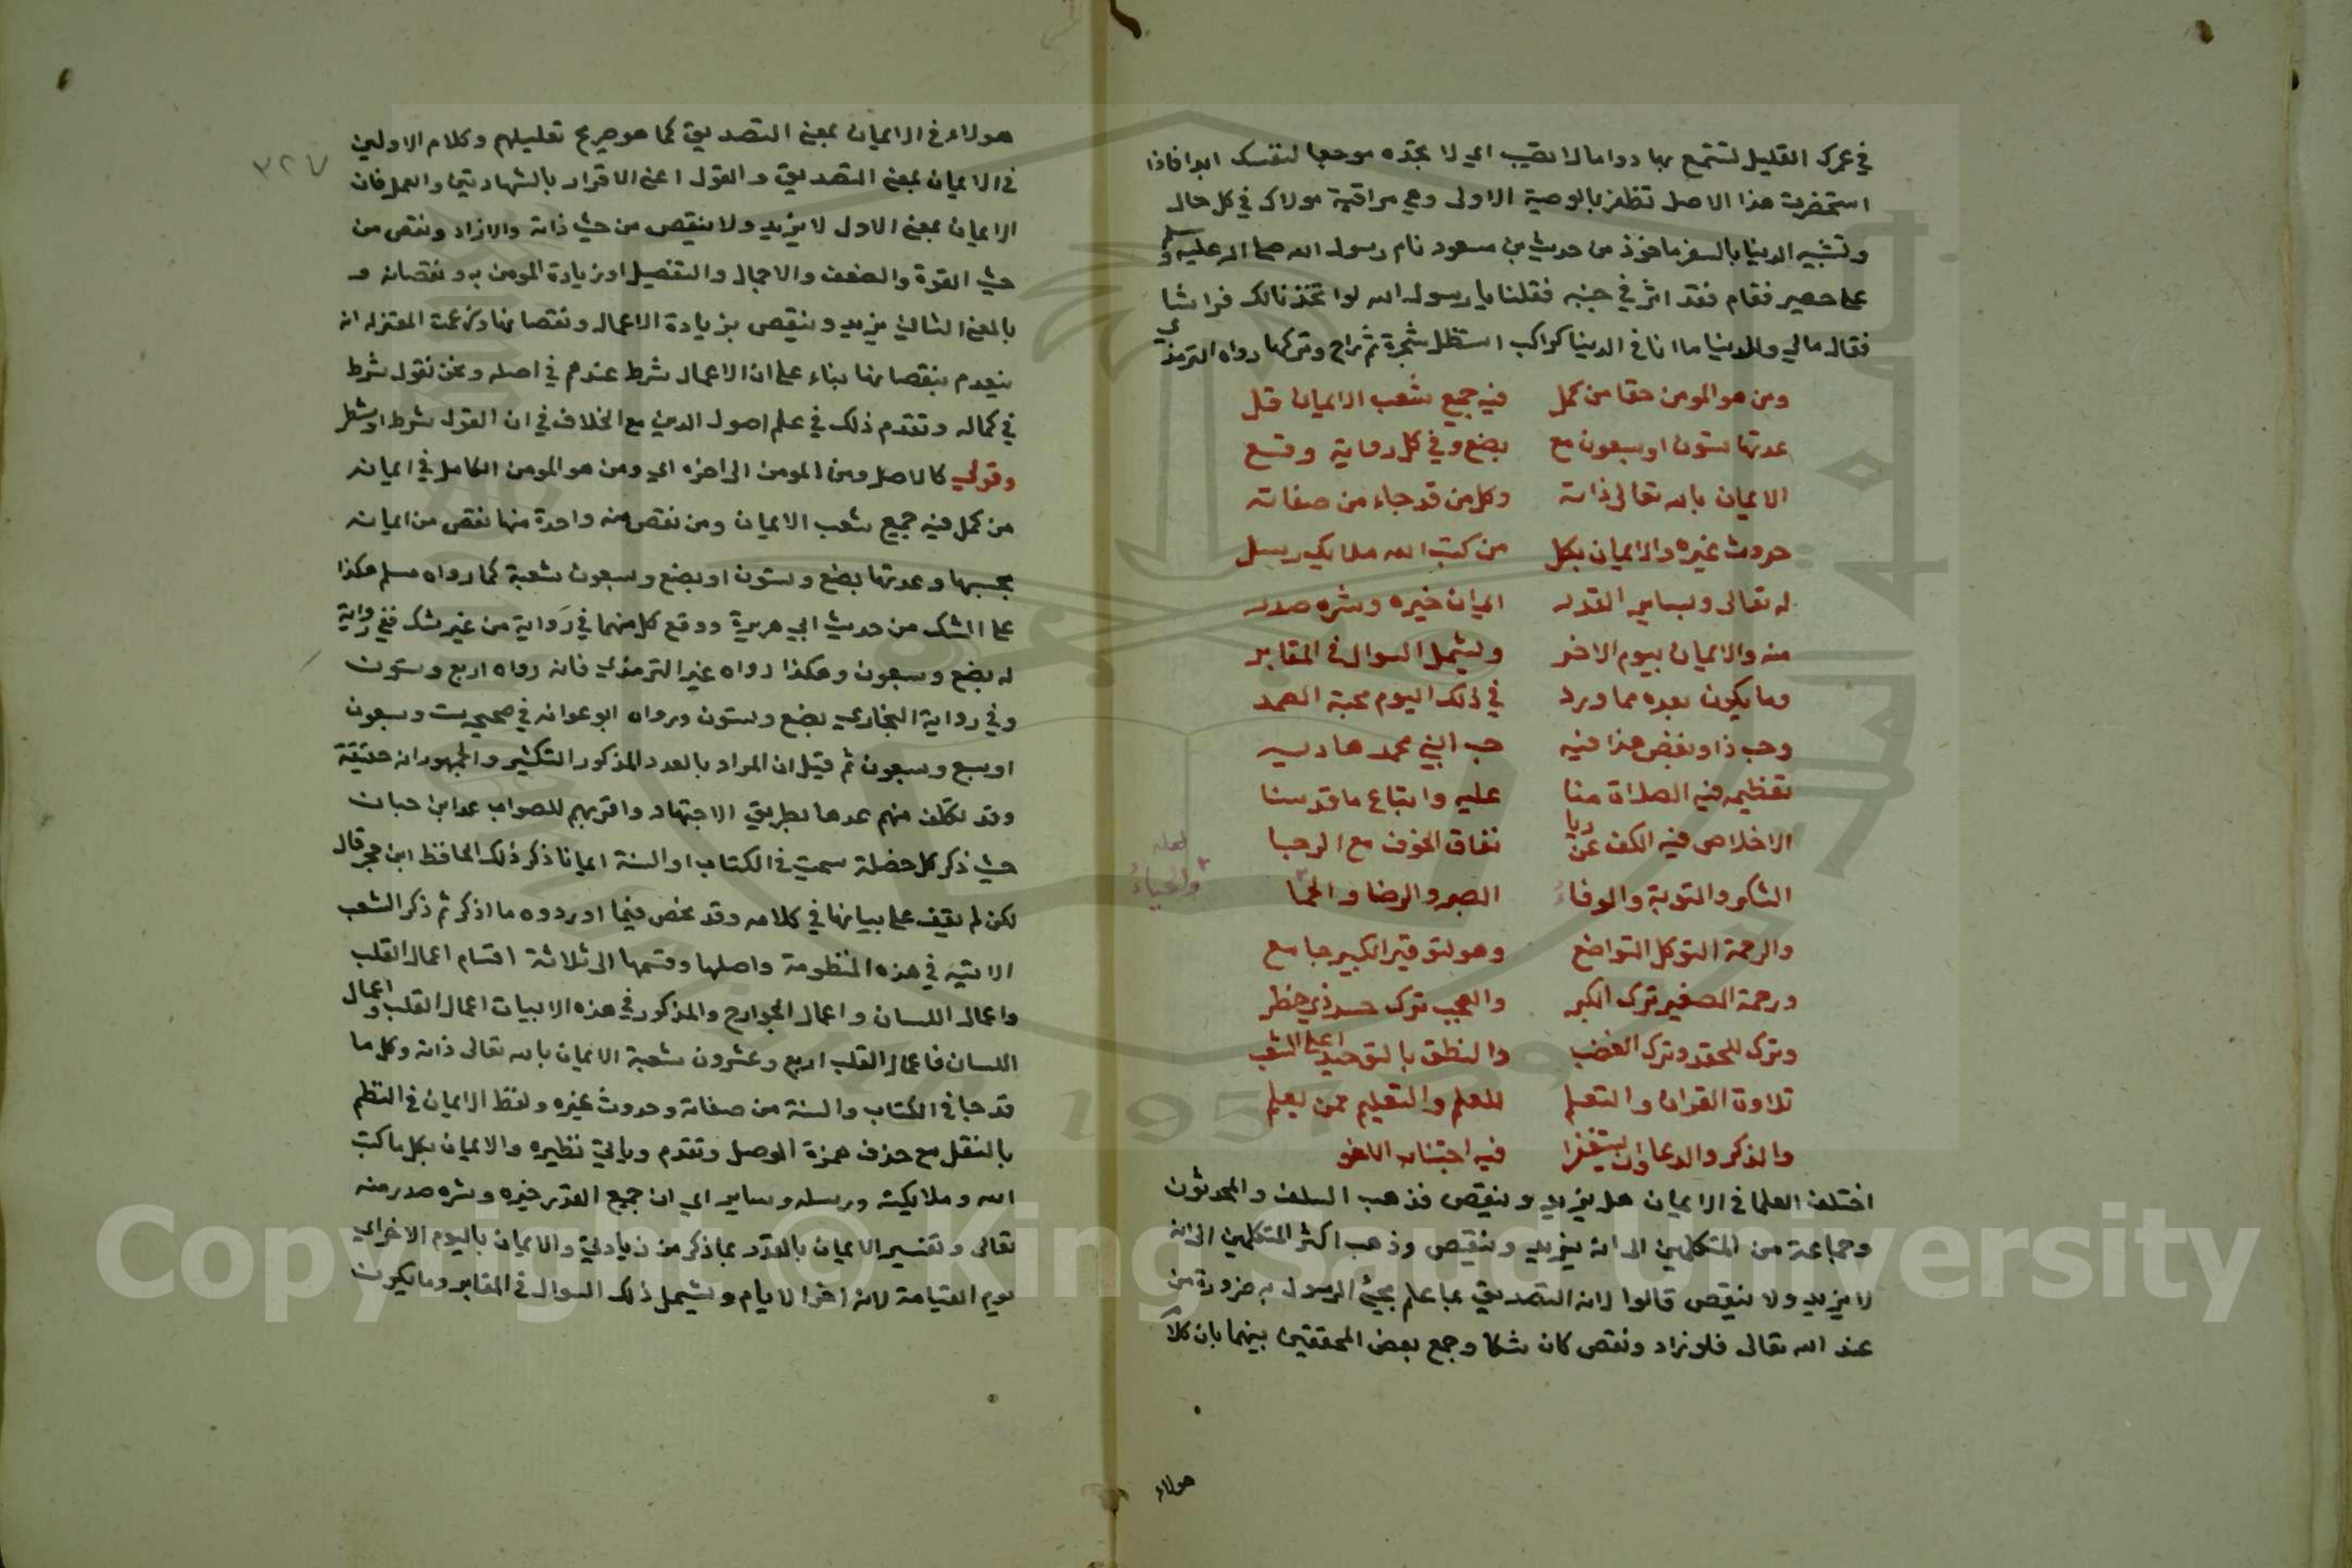 في عمرك القليل لتتمتع بها دواما لا تقيب اي لا تجده موحعا لنفسك ابدا فاذا
استحضرت هذا الاصل تظفر بالوصية الاولى وهي مراقبة مولاك في كل حال
وتشبيه الدنيا بالسفر ماخوذ من حديث بن مسعود نام رسول الله صلى الله عليه وسلم
على حصير فقام فقد اثر في جنبه فقلنا يا رسول الله لو اتخذنا لك فراشا
فقال مالي وللدنيا ما انا في الدنيا كراكب استظل شجرة ثم راح وتركها رواه الترمذي
ومن هو المومن حقا من كمل فيه جميع شعب الايمان قل
عدتها ستون او سبعون مع بضع وفي كل رواية وقع
الايمان بالله تعالى ذاته وكل من قد جاء من صفاته
حدوث غيره والايمان بكل من كتب الله ملايك رسل
له تعالى وبساير القدر اي ان خيره وشره صدر
منه والايمان بيوم الاخر وليشمل السوال في المقابر
وما يكون بعده مما ورد في ذلك اليوم محبة الصمد
وحب ذا وبغض هذا فيه حب النبي محمد هاديه
تعظيمه فيه الصلاة منا عليه واتباع ما قد سنا
الاخلاص فيه الكف عن ريا نفاق الخوف مع الرجا
لعله
والحياء
الشكر والتوبة والوفاء الصبر والرضا والحيا
والرحمة التوكل التواضع وهو لتوقير الكبير جامع
ورحمة الصغير ترك الكبر والعجب ترك حسد ذي خطر
وترك للحقد وترك الغضب والنطق بالتوحيد اعلى الشعب
تلاوة القران والتعلم للعلم والتعليم ممن يعلم
والذكر والدعا وان يستغفرا فيه اجتناب اللغو
اختلف العلما في الايمان هل يزيد وينقص فذهب السلف والمحدثون
وجماعة من المتكلمين الى انه يزيد وينقص وذهب اكثر المتكلمين الى انه
لا يزيد ولا ينقص قالوا لانه التصديق بما علم مجئ الرسول به ضرورة من
عند الله تعالى فلو زاد ونقص كان شكا وجمع بعض المحققين بينهما بان كلا
هولاء
٣٢٧
هولاء في الايمان بمعنى التصديق كما هو صريح تعليلهم وكلام الاولين
في الايمان بمعنى التصديق والقول اعني الاقرار بالشهادتين والعمل فان
الايمان بمعنى الاول لا يزيد ولا ينقص من حيث ذاته والا زاد ونقص من
حيث القوة والضعف والاجمال والتفصيل او زيادة المومن به ونقصانه و
بالمعنى الثاني يزيد وينقص بزيادة الاعمال ونقصانها وزعمت المعتزله انه
ينعدم بنقصانها بناء على ان الاعمال شرط عندهم في اصله ونحن نقول شرط
في كماله وتقدم ذلك في علم اصول الدين مع الخلاف في ان القول شرط او شطر
وقولي كالاصل ومن المومن الى اخره اي ومن هو المومن الكامل في ايمانه
من كمل فيه جميع شعب الايمان ومن نقص منه واحدة منها نقص من ايمانه
بحسبها وعدتها بضع وستون او بضع وسبعون شعبة كما رواه مسلم هكذا
على الشك من حديث ابي هريرة ووقع كل منهما في رواية من غير شك ففي رواية
له بضع وسبعون وهكذا رواه غير الترمذي فانه رواه اربع وستون
وفي رواية البخاري بضع وستون ورواه ابو عوانه في صحيحه ست وسبعون
او سبع وسبعون ثم قيل ان المراد بالعدد المذكور التكثير والجمهور انه حقيقة
وقد تكلف منهم عدها بطريق الاجتهاد واقربهم للصواب عد ابن حبان
حيث ذكر كل خصلة سميت في الكتاب او السنة ايمانا ذكر ذلك الحافظ ابن حجر قال
لكن لم نقف على بيانها في كلامه وقد نخص فيما اوردوه ما اذكر ثم ذكر الشعب
الاتيه في هذه المنظومة واصلها وقسمها الى ثلاثة اقسام اعمال القلب
واعمال اللسان واعمال الجوارح والمذكور في هذه الابيات اعمال القلب واعمال
اللسان فاعمال القلب اربع وعشرون شعبة الايمان بالله تعالى ذاته وكل ما
قد جا في الكتاب والسنة من صفاته وحدوث غيره ولفظ الايمان في النظم
بالنقل مع حذف همزة الوصل وتقدم وياتي نظيره والايمان بكل ما كتب
الله وملايكته ورسله وساير اي ان جميع القدر خيره وشره صدر منه
تعالى وتفسير الايمان بالقدر بما ذكر من زيادتي والايمان باليوم الاخر اي
يوم القيامة لانه اخر الايام وليشمل ذلك السوال في المقابر وما يكون
Copyright © King Saud University
1957